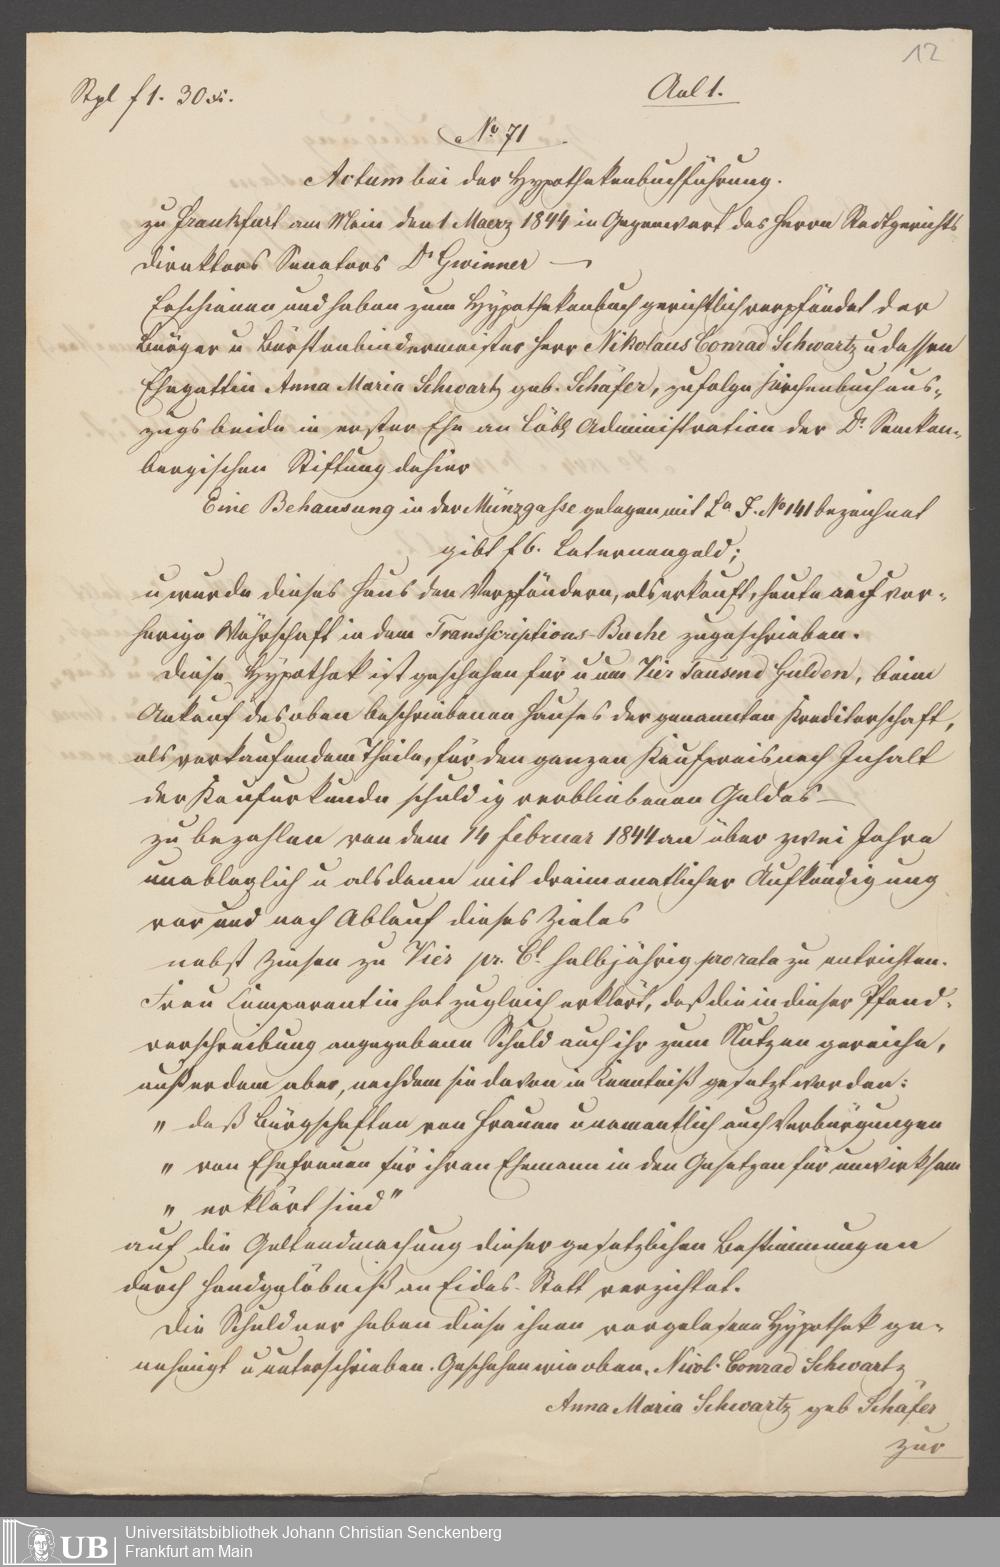 12
Stpl f 1. 30 x.
Anl 1.
No 71
Actum bei der Hypothekenbuchführung.
zu Frankfurt am Main den 1 Maerz 1844 in Gegenwart des Herrn Stadtgerichts
direktors Senators Dr Gwinner —
Erschienen und haben zum Hypothekenbuch gerichtlich verpfändet der
Bürger u Bürstenbindermeister Herr Nikolaus Conrad Schwartz u dessen
Ehegattin Anna Maria Schwartz geb. Schäfer, zufolge Kirchenbuchaus-
zugs beide in erster Ehe an Löbl Administration der Dr. Sencken-
bergischen Stiftung dahier
Eine Behausung in der Münzgasse gelegen mit La J. No 141 bezeichnet
gibt f 6. Laternengeld;
u wurde dieses Haus den Verpfändern, als erkauft, heute auf vor-
herige Währschaft in dem Transscriptions-Buche zugeschrieben.
Diese Hypothek ist geschehen für u um Vier Tausend Gulden, beim
Ankauf des oben beschriebenen Hauses der genannten Krediterschaft,
als verkaufendem Theile, für den ganzen Kaufpreis nach Inhalt
der Kaufurkunde schuldig verbliebenen Geldes —
zu bezahlen von dem 14 Februar 1844 an über zwei Jahre
unableglich u alsdann mit dreimonatlicher Aufkündigung
vor und nach Ablauf dieses Zieles
nebst Zinsen zu Vier pr. Ct. halbjährig pro rata zu entrichten.
Frau Comparentin hat zugleich erklärt, daß die in dieser Pfand-
verschreibung angegebene Schuld auch ihr zum Nutzen gereiche,
außerdem aber, nachdem sie davon in Kenntniß gesetzt worden:
„ daß Bürgschaften von Frauen u namentlich auch Verbürgungen
„ von Ehefrauen für ihren Ehemann in den Gesetzen für unwirksam
„ erklärt sind"
auf die Geltendmachung dieser gesetzlichen Bestimmungen
durch Handgelöbniß an Eides-Statt verzichtet.
Die Schuldner haben diese ihnen vorgelesene Hypothek ge-
nehmigt u unterschrieben. Geschehen wie oben. Nicol. Conrad Schwartz
Anna Maria Schwartz geb Schäfer
zur
UB
Universitätsbibliothek Johann Christian Senckenberg
Frankfurt am Main